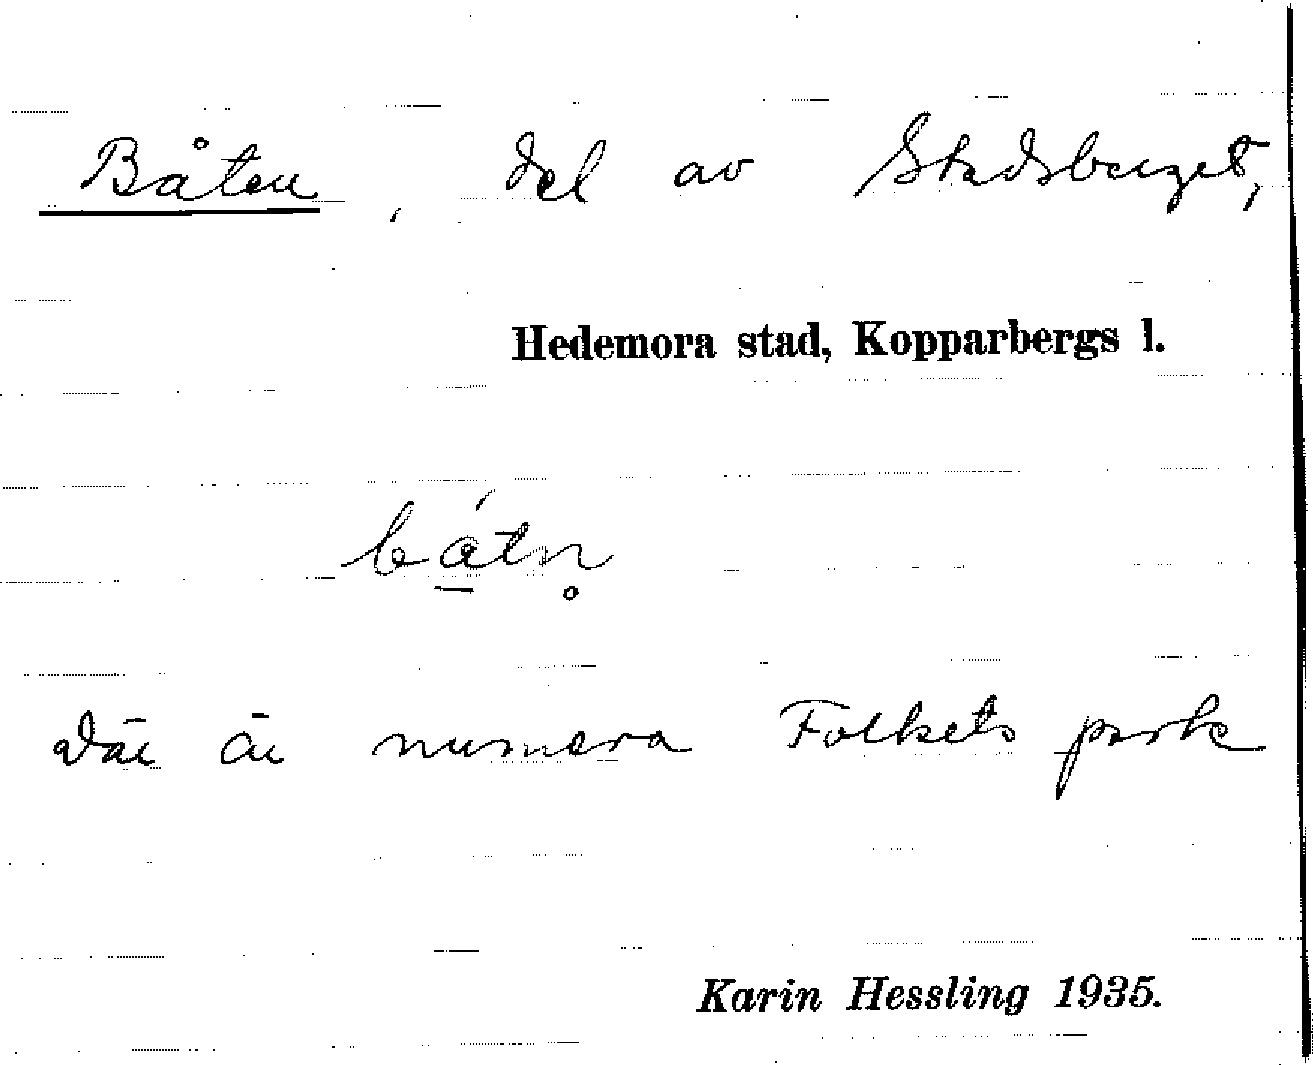 Båten, del av Stadsberget,
Hedemora stad, Kopparbergs l.
bá̱tn̥
Där är numera Folkets park
Karin Hessling 1935.